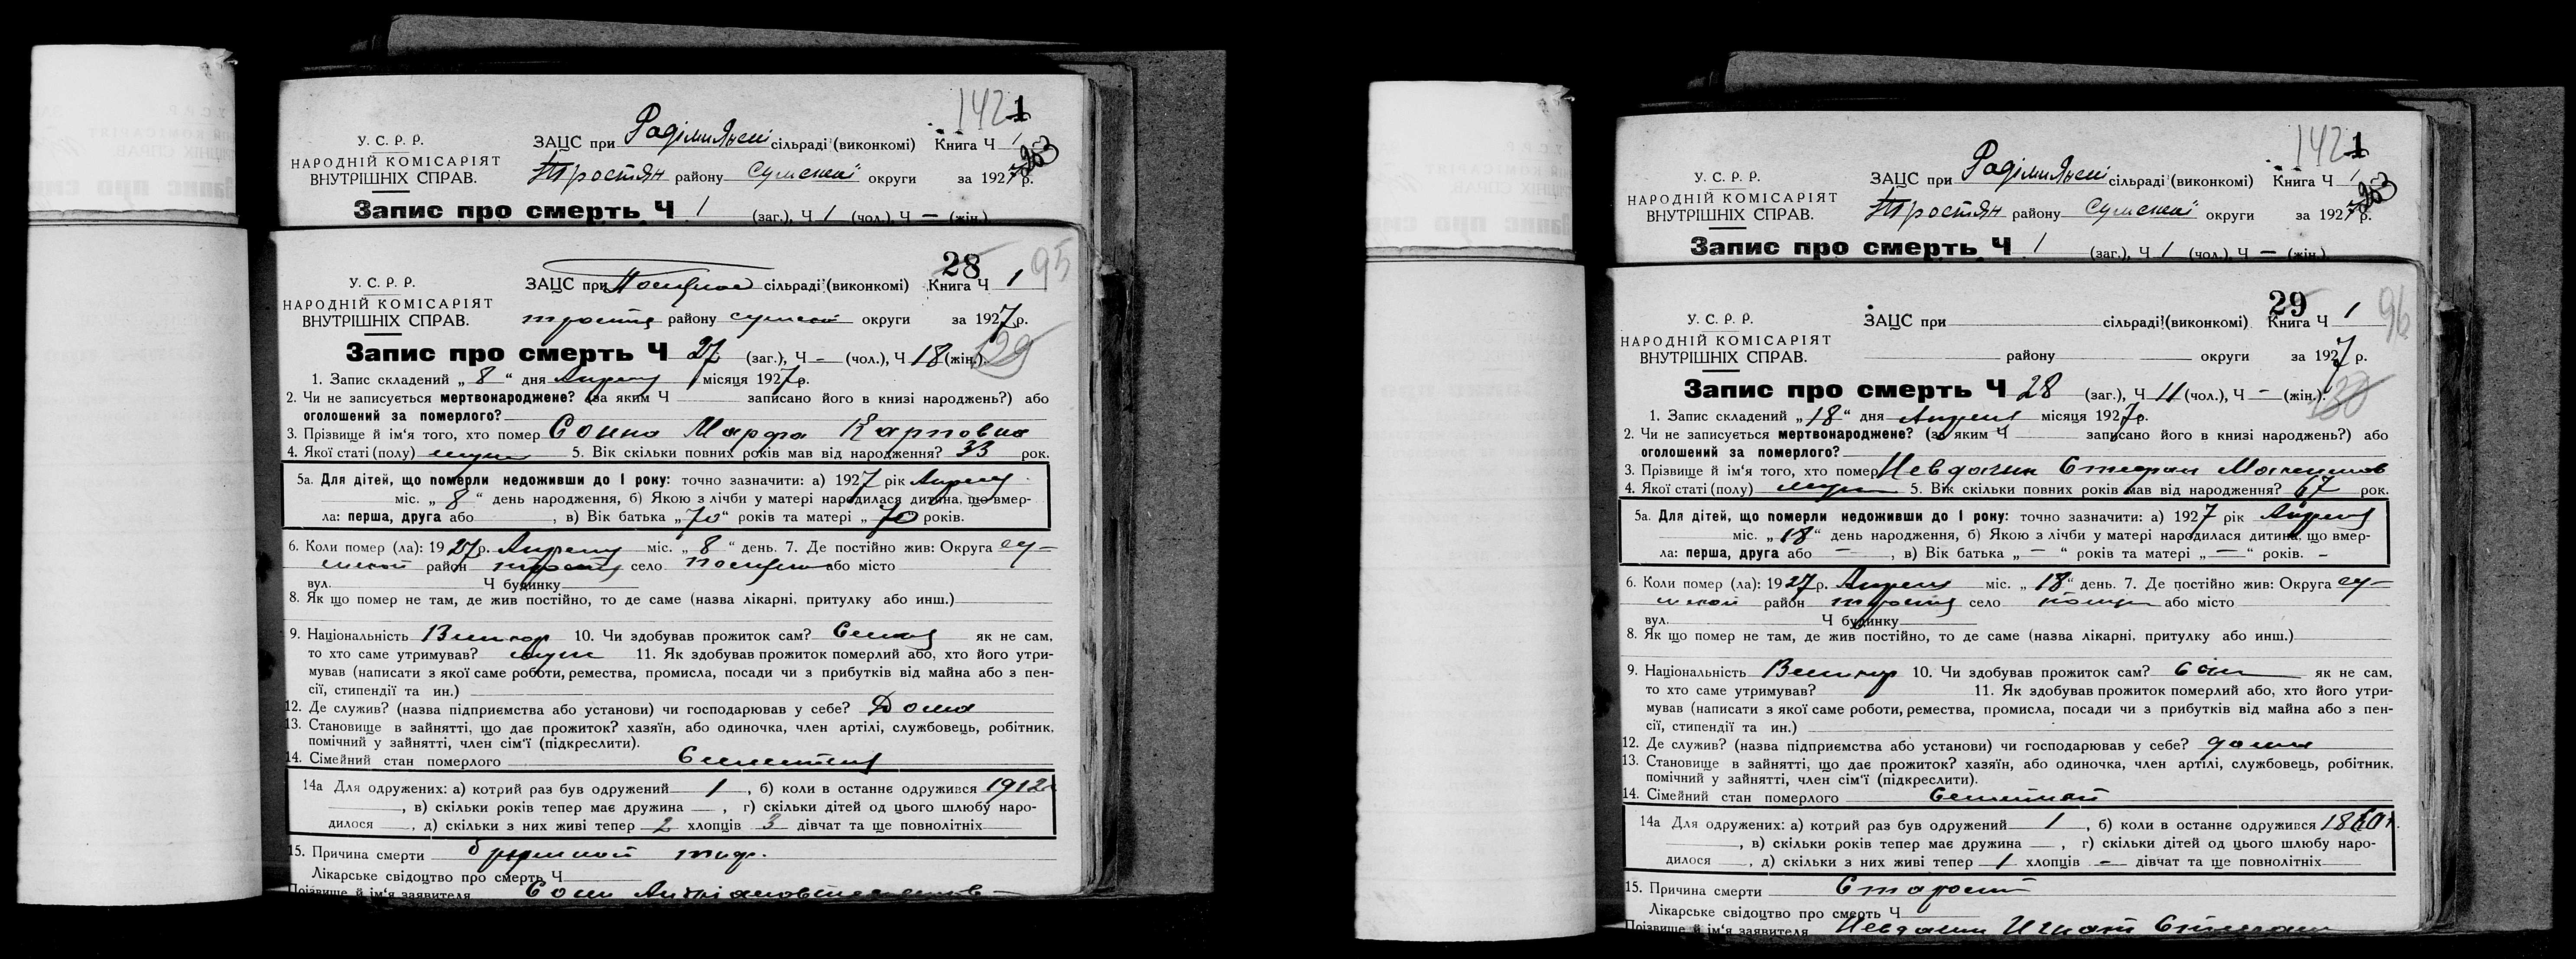 142 1
У. С. Р. Р.
НАРОДНІЙ КОМІСАРІЯТ
ВНУТРІШНІХ СПРАВ.
ЗАЦС при сільраді (виконкомі) Книга Ч 1
Тростян району Сумської округи за 1927 р.
Запис про смерть Ч 1 (заг.), Ч 1 (чол.), Ч — (жін.)
28 95
У. С. Р. Р.
НАРОДНІЙ КОМІСАРІЯТ
ВНУТРІШНІХ СПРАВ.
ЗАЦС при сільраді (виконкомі) Книга Ч 1
району округи за 1927 р.
29
Запис про смерть Ч 27 (заг.), Ч - (чол.), Ч 18 (жін.).
1. Запис складений „ 8 “ дня місяця 1927 р.
2. Чи не записується мертвонароджене? (за яким Ч записано його в книзі народжень?) або
оголошений за померлого?
3. Прізвище й ім‘я того, хто помер Марфа Карповна
4. Якої статі (полу) 5. Вік скільки повних років мав від народження? 33 рок.
5а. Для дітей, що померли недоживши до 1 року: точно зазначити: а) 1927 рік
міс. „ 8 “ день народження, б) Якою з лічби у матері народилася дитина, що вмер-
ла: перша, друга або , в) Вік батька „70“ років та матері „ 70 років.
6. Коли помер (ла): 1927 р. міс. „ 8 “ день. 7. Де постійно жив: Округа су-
район село або місто
вул. Ч будинку
8. Як що помер не там, де жив постійно, то де саме (назва лікарні, притулку або инш.)
9. Національність 10. Чи здобував прожиток сам? як не сам,
то хто саме утримував? 11. Як здобував прожиток померлий або, хто його утри-
мував (написати з якої саме роботи, ремества, промисла, посади чи з прибутків від майна або з пен-
сії, стипендії та ин.)
12. Де служив? (назва підприємства або установи) чи господарював у себе? Дома
13. Становище в зайнятті, що дає прожиток? хазяїн, або одиночка, член артілі, службовець, робітник,
помічний у зайнятті, член сім‘ї (підкреслити).
14. Сімейний стан померлого
14а Для одружених: а) котрий раз був одружений 1 , б) коли в останнє одружився 1912
, в) скільки років тепер має дружина — , г) скільки дітей од цього шлюбу наро-
дилося — , д) скільки з них живі тепер 2 хлопців 3 дівчат та ще повнолітніх
15. Причина смерти брюшной тиф.
Лікарське свідоцтво про смерть Ч
Прізвище й ім‘я заявителя
142 1
У. С. Р. Р.
НАРОДНІЙ КОМІСАРІЯТ
ВНУТРІШНІХ СПРАВ.
ЗАЦС при сільраді (виконкомі) Книга Ч 1
Тростян району Сумської округи за 1927 р.
Запис про смерть Ч 1 (заг.), Ч 1 (чол.), Ч — (жін.)
29 96
У. С. Р. Р.
НАРОДНІЙ КОМІСАРІЯТ
ВНУТРІШНІХ СПРАВ.
ЗАЦС при сільраді (виконкомі) Книга Ч 1
району округи за 1927 р.
30
Запис про смерть Ч 28 (заг.), Ч 11 (чол.), Ч - (жін.).
1. Запис складений „ 18 “ дня місяця 1927 р.
2. Чи не записується мертвонароджене? (за яким Ч записано його в книзі народжень?) або
оголошений за померлого?
3. Прізвище й ім‘я того, хто помер Стефан
4. Якої статі (полу) 5. Вік скільки повних років мав від народження? 67 рок.
5а. Для дітей, що померли недоживши до 1 року: точно зазначити: а) 1927 рік
міс. „ 18 “ день народження, б) Якою з лічби у матері народилася дитина, що вмер-
ла: перша, друга або — , в) Вік батька „ — “ років та матері „ — “ років. -
6. Коли помер (ла): 1927 р. міс. „ 18 “ день. 7. Де постійно жив: Округа су-
район село або місто
вул. Ч будинку
8. Як що помер не там, де жив постійно, то де саме (назва лікарні, притулку або инш.)
9. Національність 10. Чи здобував прожиток сам? сам як не сам,
то хто саме утримував? 11. Як здобував прожиток померлий або, хто його утри-
мував (написати з якої саме роботи, ремества, промисла, посади чи з прибутків від майна або з пен-
сії, стипендії та ин.)
12. Де служив? (назва підприємства або установи) чи господарював у себе? дома
13. Становище в зайнятті, що дає прожиток? хазяїн, або одиночка, член артілі, службовець, робітник,
помічний у зайнятті, член сім‘ї (підкреслити).
14. Сімейний стан померлого
14а Для одружених: а) котрий раз був одружений 1 , б) коли в останнє одружився
, в) скільки років тепер має дружина — , г) скільки дітей од цього шлюбу наро-
дилося — , д) скільки з них живі тепер 1 хлопців - дівчат та ще повнолітніх
15. Причина смерти
Лікарське свідоцтво про смерть Ч
Прізвище й ім‘я заявителя Игнат